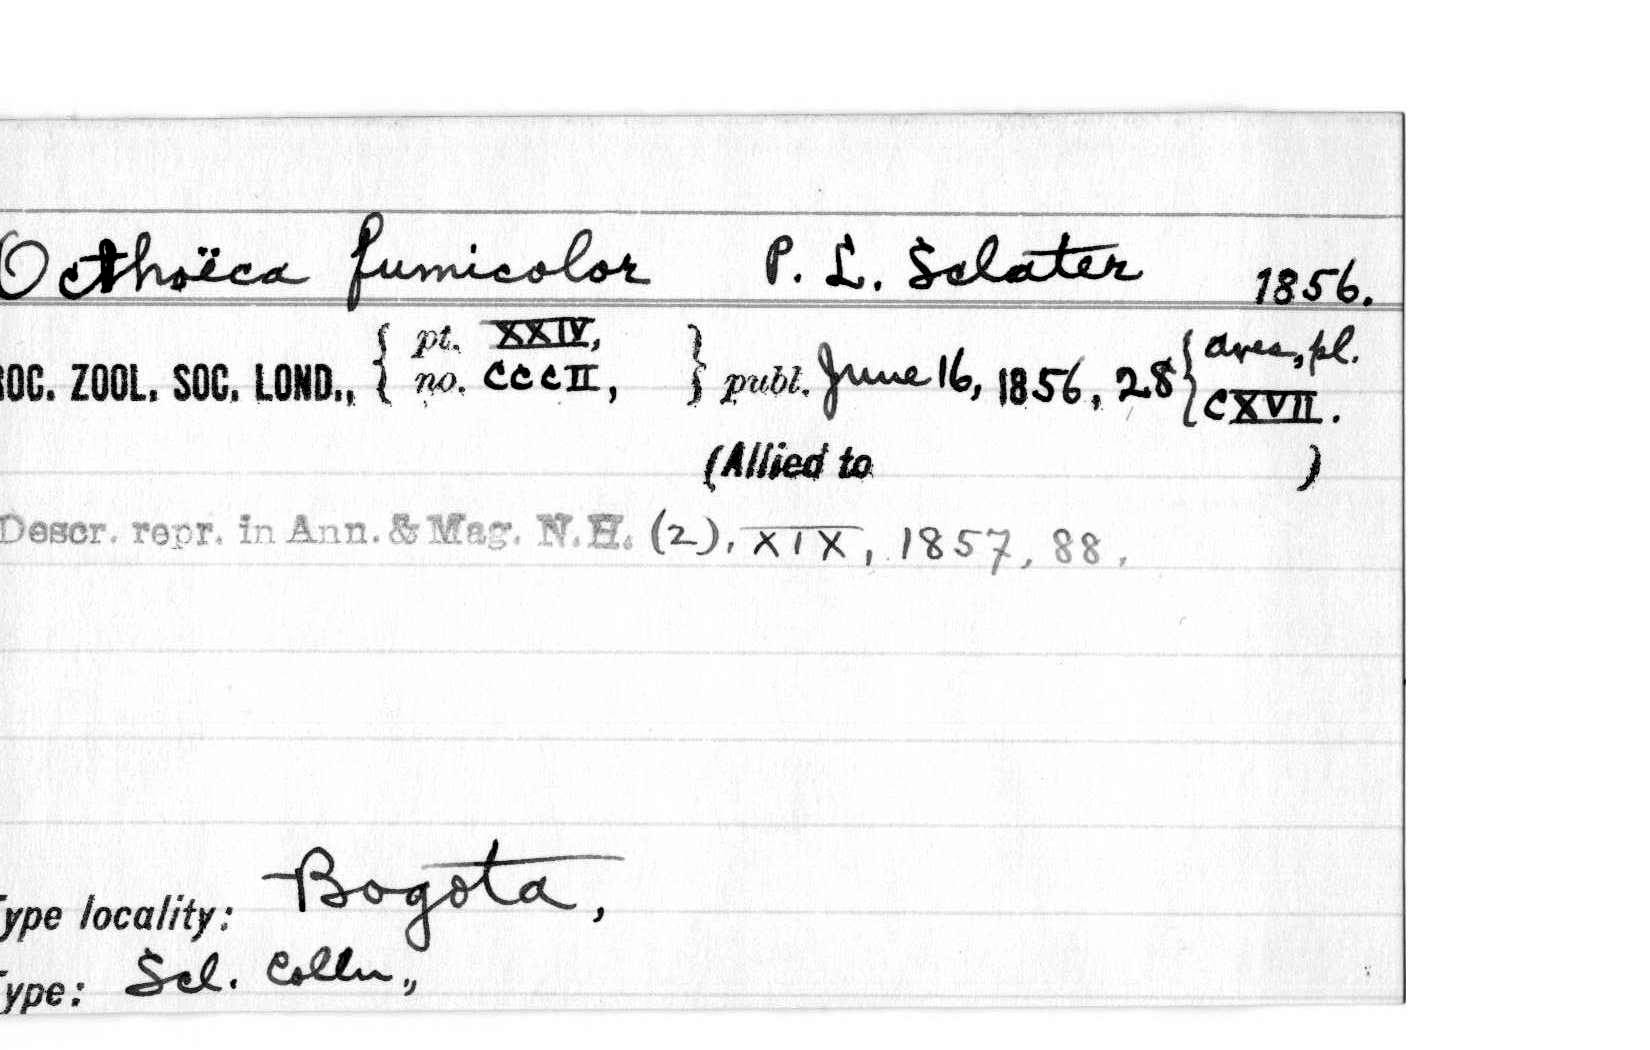 Octhoëca fumicolor P. L. Sclater 1856.
ROC. ZOOL. SOC. LOND., { pt. XXIV, no. CCCII, } publ. June 16, 1856, 28 { Aves, pl. CXVII.
(Allied to )
Descr. repr. in Ann. & Mag. N.H. (2), XIX, 1857, 88.
Type locality: Bogota,
Type: Scl. Colln,,